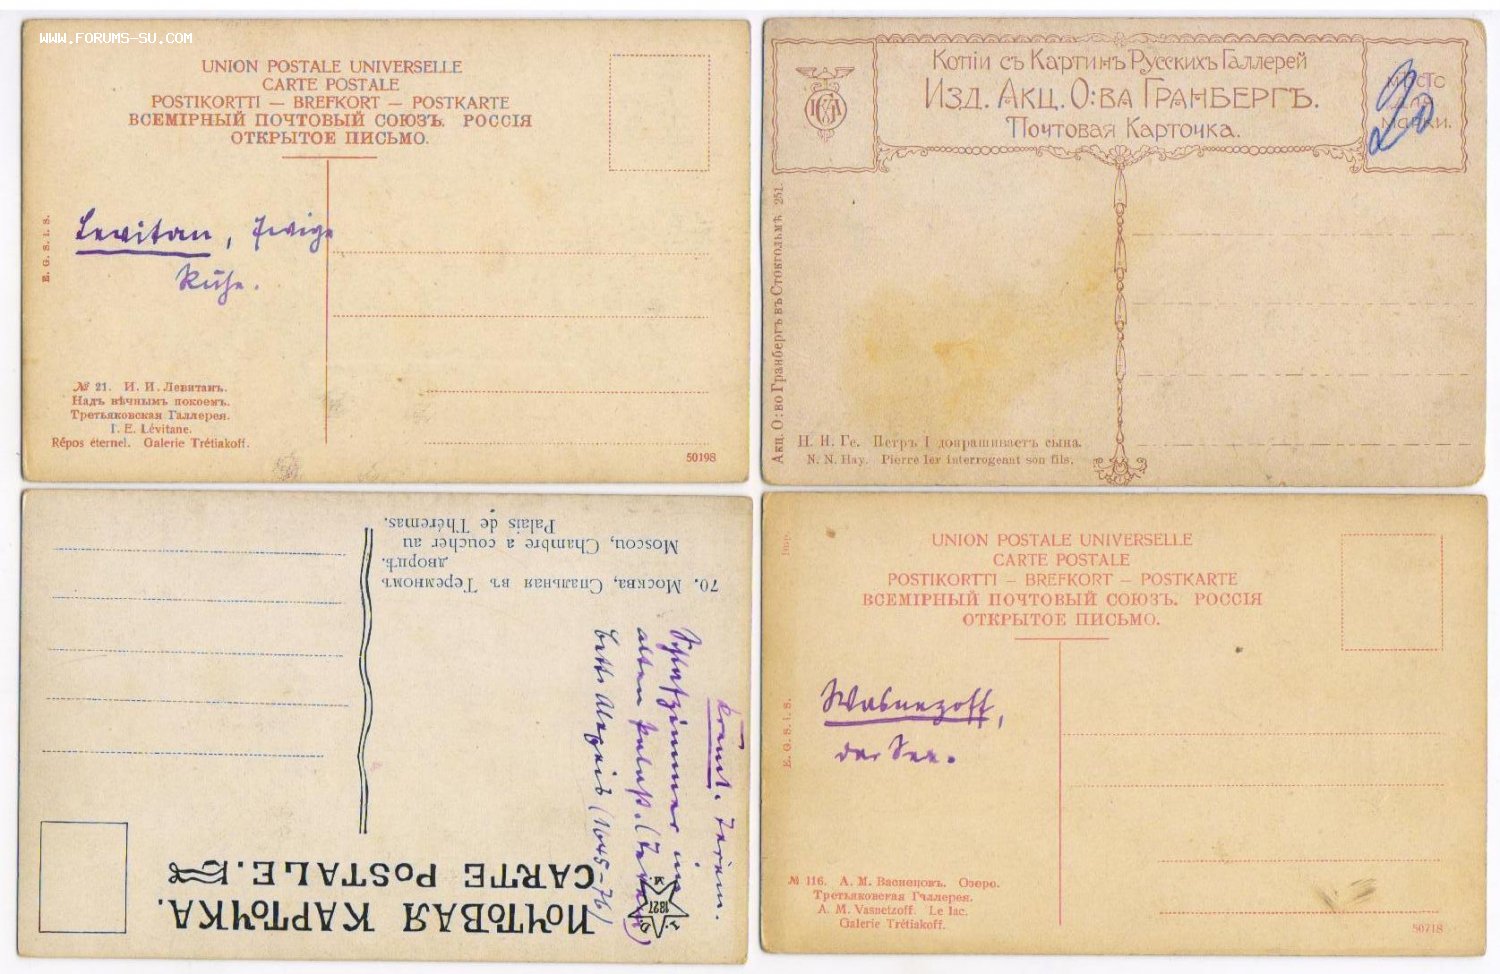 WWW.FORUMS-SU.COM
UNION POSTALE UNIVERSELLE
CARTE POSTALE
POSTIKORTTI — BREFKORT — POSTKARTE
ВСЕМІРНЫЙ ПОЧТОВЫЙ СОЮЗЪ. РОССІЯ
ОТКРЫТОЕ ПИСЬМО.
E. G. S. i. S.
Levitan, Ewige
Ruhe.
№ 21. И. И. Левитанъ.
Надъ вѣчнымъ покоемъ.
Третьяковская Галлерея.
I. E. Lévitane.
Répos éternel. Galerie Trétiakoff.
50198
Копіи съ Картинъ Русскихъ Галлерей
Изд. Акц. О:ва Гранбергъ.
Почтовая Карточка.
МѢСТО
ДЛЯ
МАРКИ.
20
Акц. О:во Гранбергъ въ Стокгольмѣ 251.
Н. Н. Ге. Петръ I допрашиваетъ сына.
N. N. Hay. Pierre Ier interrogeant son fils.
70. Москва, Спальная въ Теремномъ
дворцѣ.
Moscou, Chambre a coucher au
Palais de Thérémas.
Kreml.
Schlafzimmer im
alten Palast.
(1645-76)
ПОЧТОВАЯ КАРТОЧКА.
CARTE POSTALE.
1827
UNION POSTALE UNIVERSELLE
CARTE POSTALE
POSTIKORTTI — BREFKORT — POSTKARTE
ВСЕМІРНЫЙ ПОЧТОВЫЙ СОЮЗЪ. РОССІЯ
ОТКРЫТОЕ ПИСЬМО.
E. G. S. i. S.
Wasnezoff,
der See.
№ 116. А. М. Васнецовъ. Озеро.
Третьяковская Галлерея.
A. M. Vasnetzoff. Le lac.
Galerie Trétiakoff.
50718